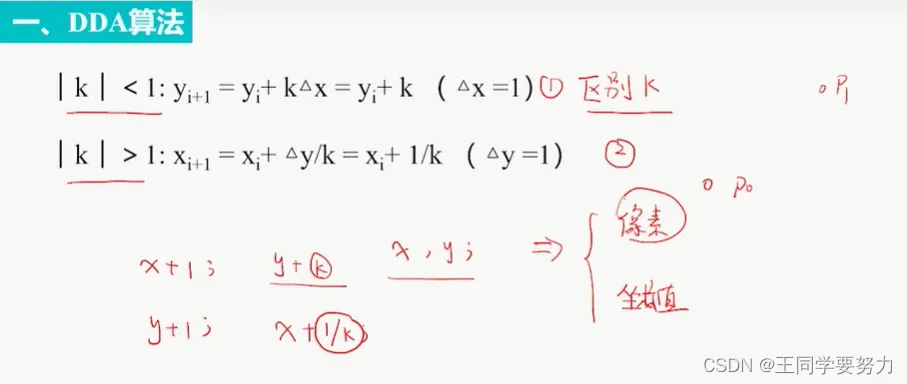 一、DDA算法
| k | < 1: yᵢ₊₁ = yᵢ+ k△x = yᵢ+ k （ △x =1) ① 区别 K
。P₁
| k | > 1: xᵢ₊₁ = xᵢ+ △y/k = xᵢ+ 1/k （ △y =1) ②
。P₀
像素
x+1； y+k x , y； ⇒
坐标值
y+1； x+1/k；
CSDN @王同学要努力